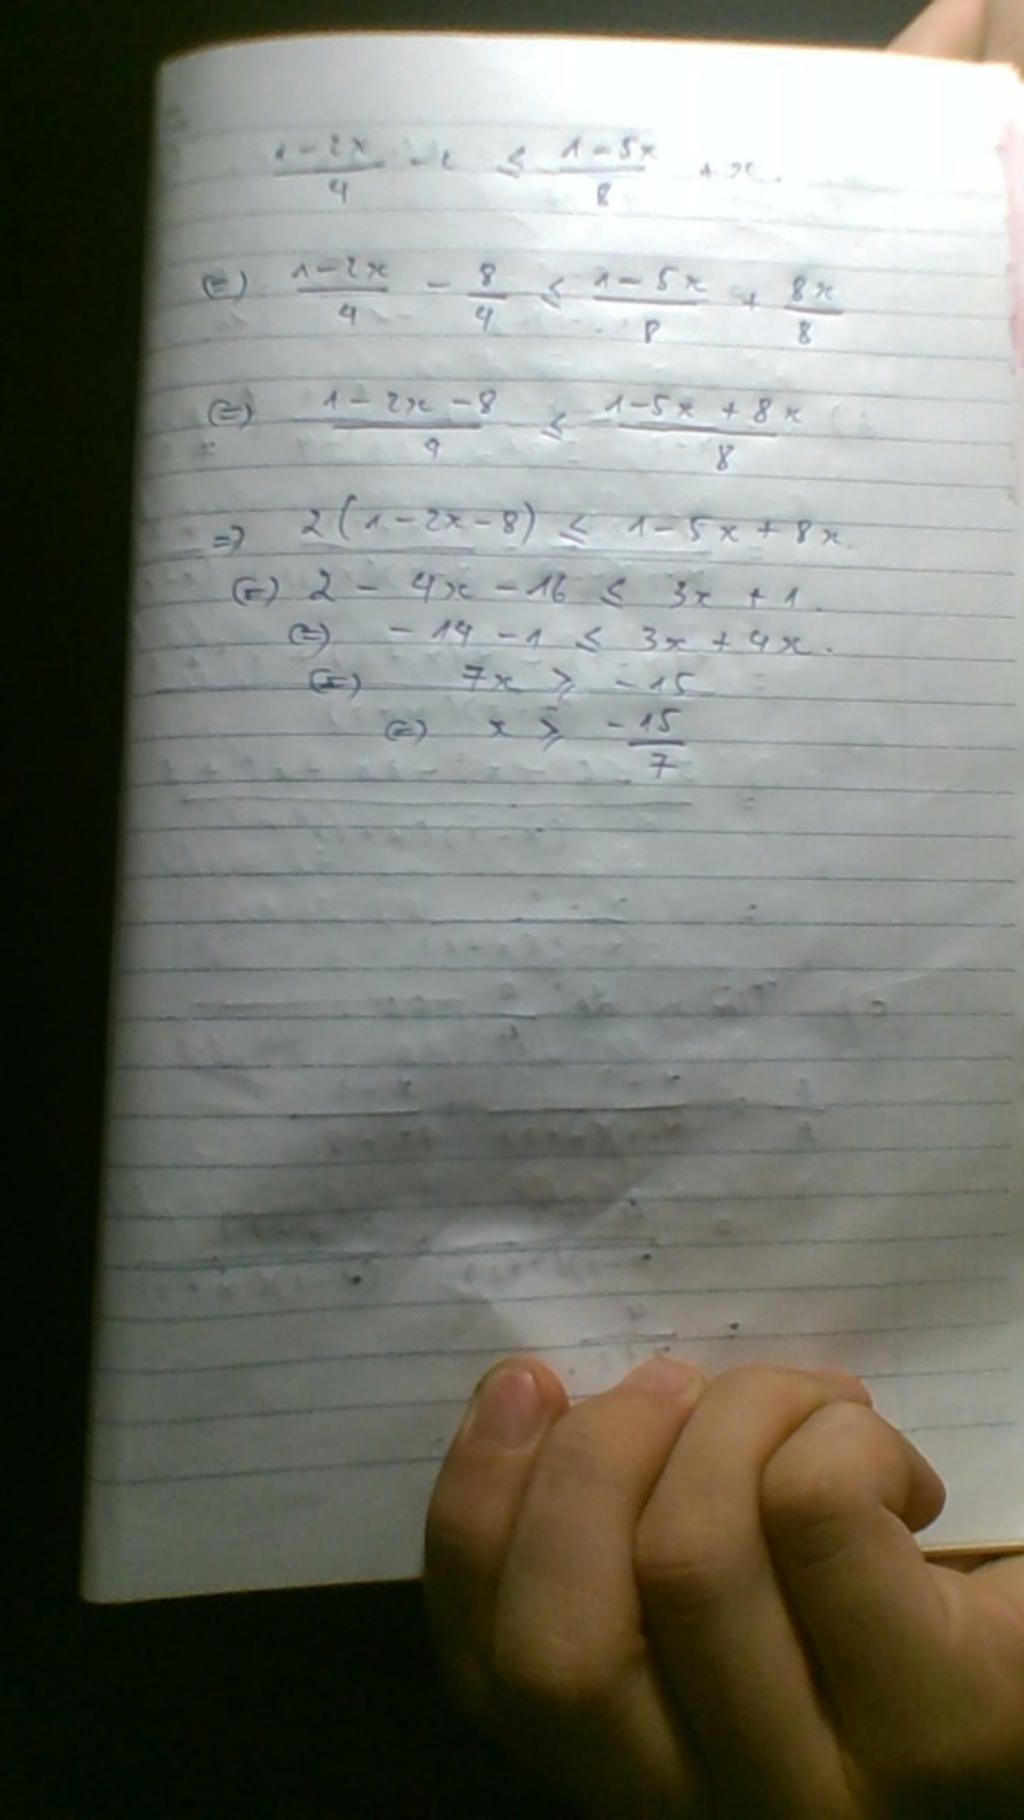 1-2x/4 - 2 ≤ 1-5x/8 + x.
(=) 1-2x/4 - 8/4 ≤ 1-5x/8 + 8x/8
(=) 1-2x-8/4 ≤ 1-5x+8x/8
=) 2(1-2x-8) ≤ 1-5x+8x.
(=) 2 - 4x - 16 ≤ 3x + 1.
(=) -14 - 1 ≤ 3x + 4x.
(=) 7x ≥ -15
(=) x ≥ -15/7